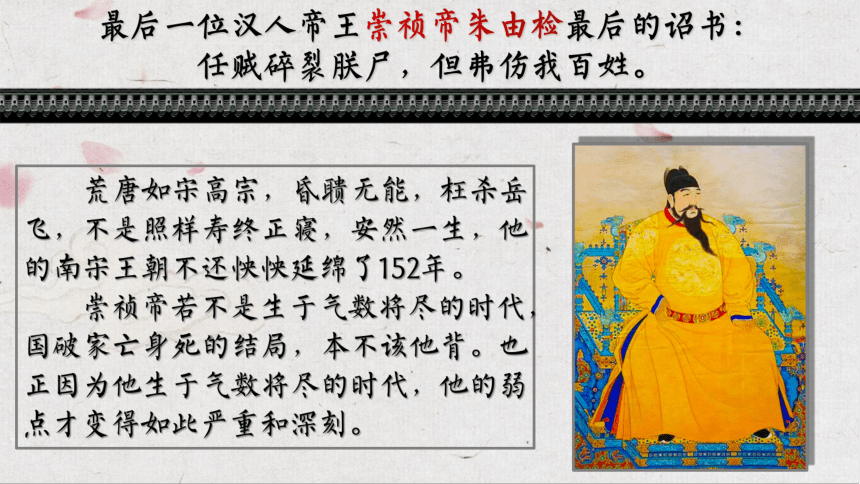 最后一位汉人帝王崇祯帝朱由检最后的诏书：
任贼碎裂朕尸，但弗伤我百姓。
荒唐如宋高宗，昏聩无能，枉杀岳
飞，不是照样寿终正寝，安然一生，他
的南宋王朝不还怏怏延绵了152年。
崇祯帝若不是生于气数将尽的时代，
国破家亡身死的结局，本不该他背。也
正因为他生于气数将尽的时代，他的弱
点才变得如此严重和深刻。